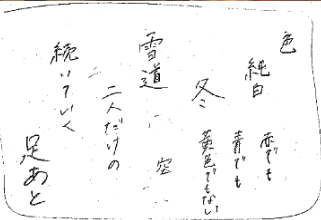 色
純白
赤でも
青でも
黄色でもない
冬
空
雪道
二人だけの
続いていく
足あと